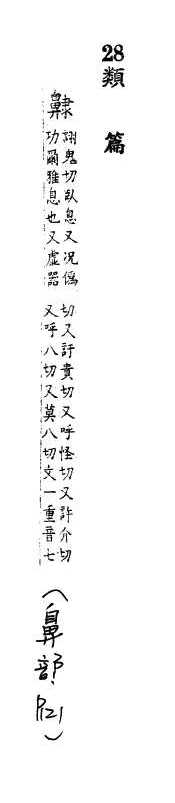 28
類篇
齂
詡鬼切臥息又況偽
功爾雅息也又虛器
切又訏貴切又呼怪切又許介切
又呼八切又莫八切文一重音七
(鼻部,P121)